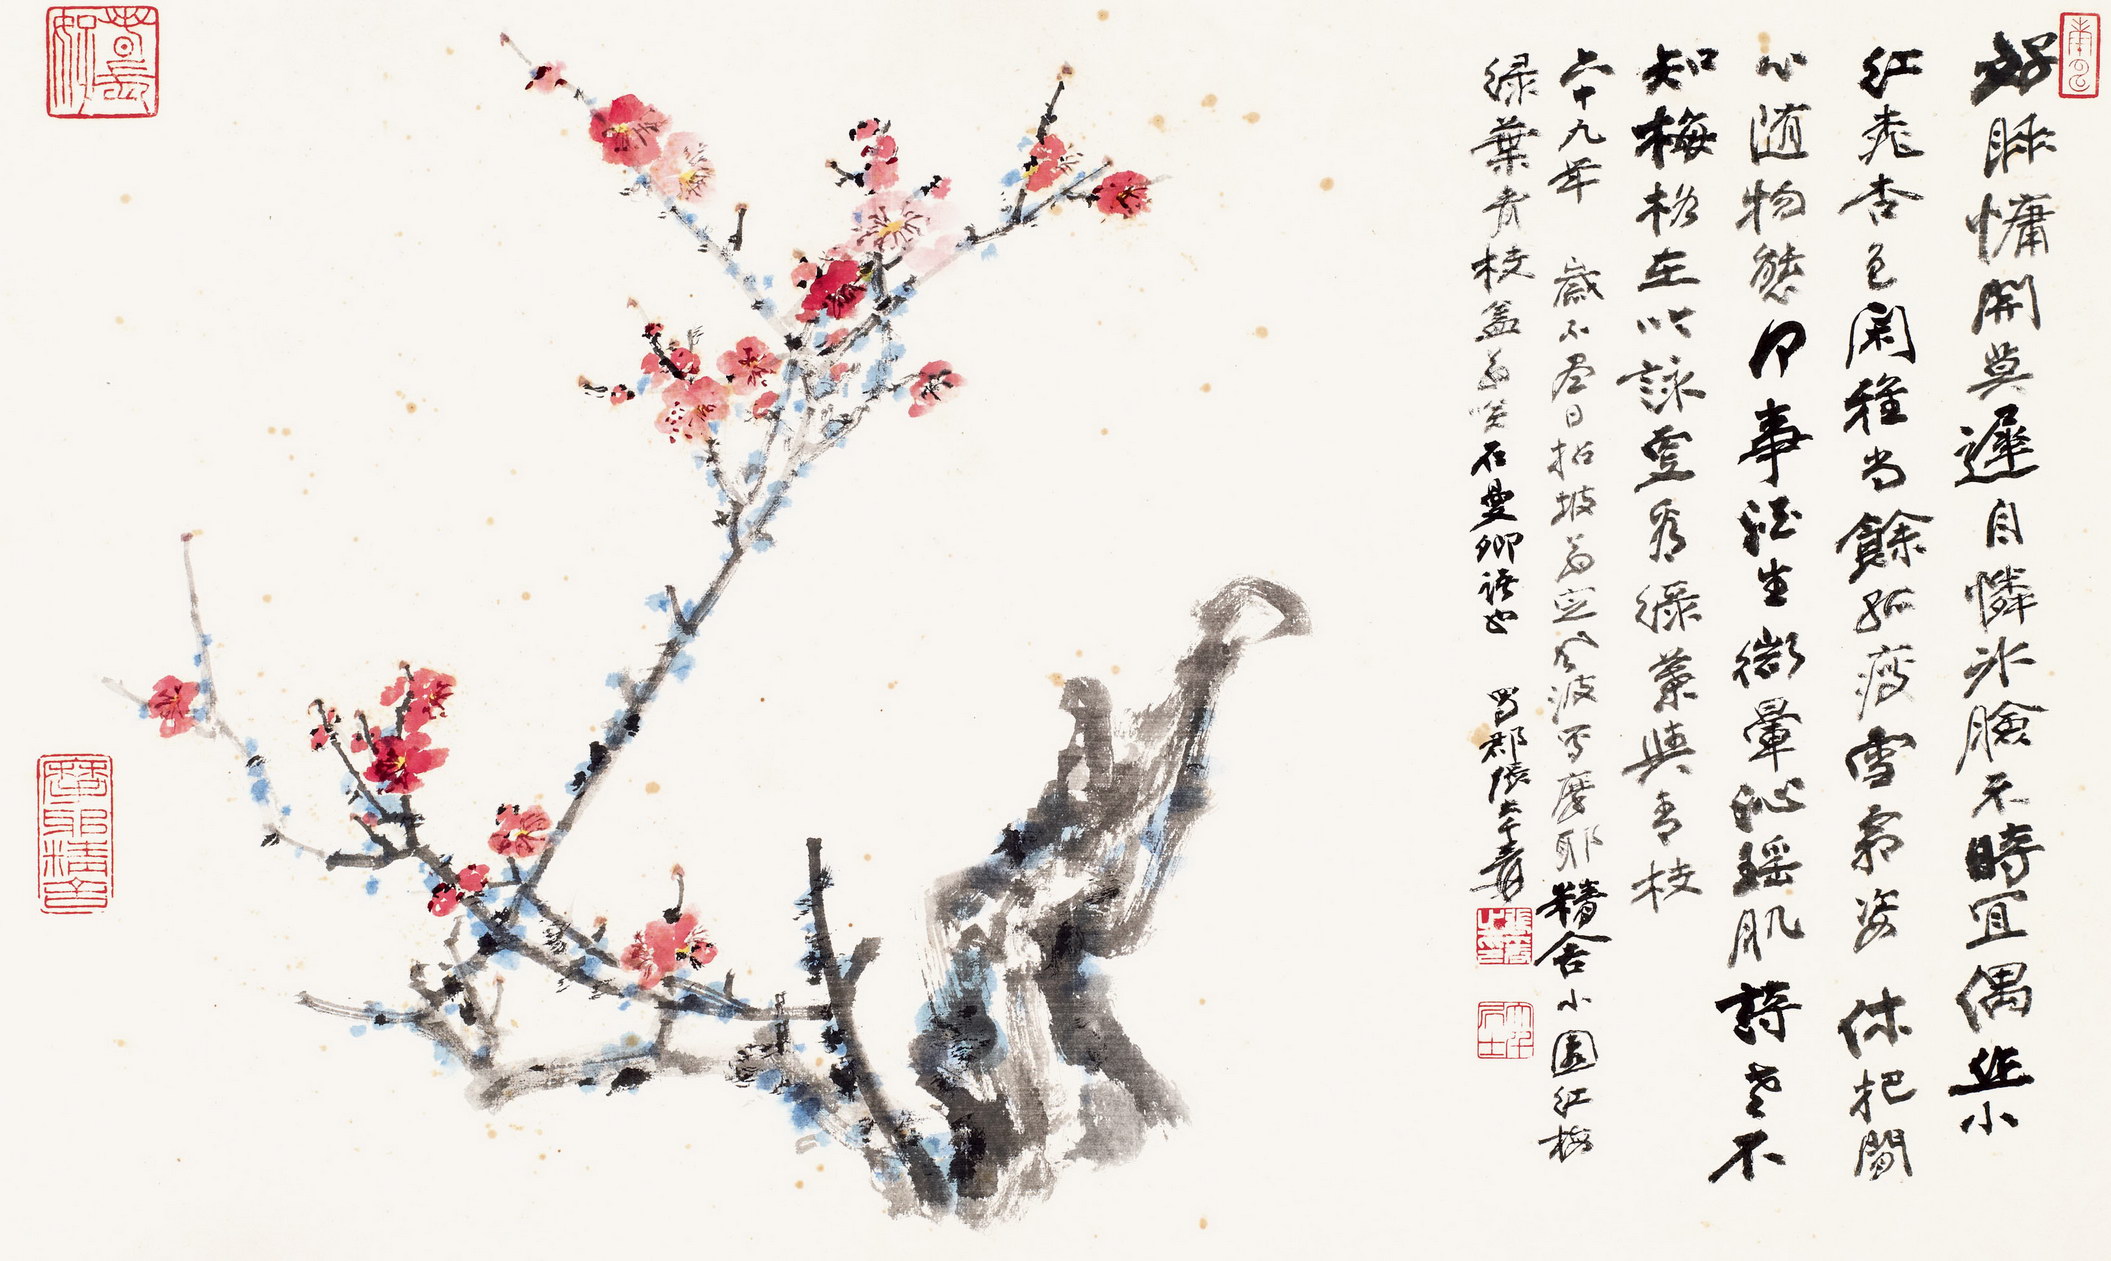 好睡慵開莫遲自憐冰臉不時宜偶作小
紅桃杏色閑雅尚餘孤瘦雪霜姿 休把閒
心随物態何事酒生微暈沁瑤肌詩老不
知梅格在吟詠更看綠葉與青枝
六十九年 歲不盡日拈坡翁定風波寫摩耶精舍小園紅梅
緑葉青枝蓋翁笑石曼卿語也 蜀郡張大千爰
張爰之印
大千居士
摩耶精舍